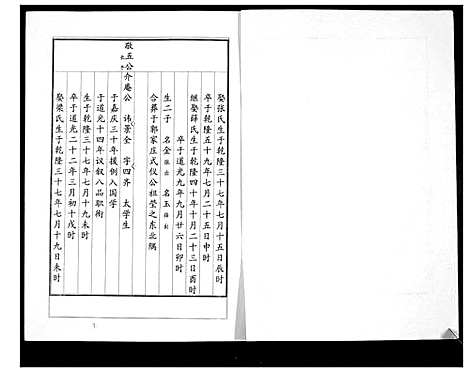 娶张氏生于乾隆三十七年七月十五日辰时
卒于乾隆五十九年七月二十五日申时
继娶薛氏生于乾隆四十年十月二十三日酉时
卒于道光九年九月廿六日卯时
生二子 名金 名玉
合葬于郭家庄式仪公祖茔之东北隅
敬五公 介庵公 讳景全 字四齐 太学生
于嘉庆三十年援例入国学
于道光十四年议叙八品职衔
生于乾隆三十七年七月十九未时
卒于道光二十二年三月初十戌时
娶梁氏生于乾隆三十七年七月十九日未时